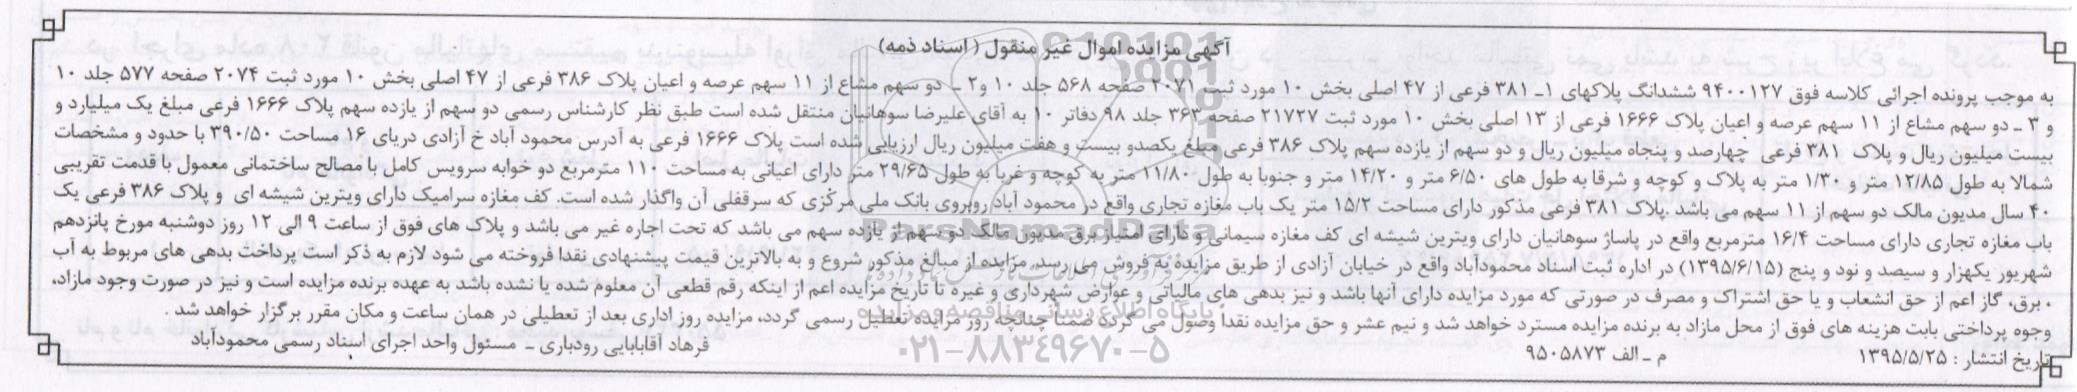 آگهی مزایده اموال غیر منقول (اسناد ذمه)
به موجب پرونده اجرائی کلاسه فوق ۹۴۰۰۱۲۷ ششدانگ پلاکهای ۱ـ ۳۸۱ فرعی از ۴۷ اصلی بخش ۱۰ مورد ثبت ۲۰۷۱ صفحه ۵۶۸ جلد ۱۰ و۲ ـ دو سهم مشاع از ۱۱ سهم عرصه و اعیان پلاک ۳۸۶ فرعی از ۴۷ اصلی بخش ۱۰ مورد ثبت ۲۰۷۴ صفحه ۵۷۷ جلد ۱۰
و ۳ ـ دو سهم مشاع از ۱۱ سهم عرصه و اعیان پلاک ۱۶۶۶ فرعی از ۱۳ اصلی بخش ۱۰ مورد ثبت ۲۱۷۲۷ صفحه ۳۶۳ جلد ۹۸ دفاتر ۱۰ به آقای علیرضا سوهانیان منتقل شده است طبق نظر کارشناس رسمی دو سهم از یازده سهم پلاک ۱۶۶۶ فرعی مبلغ یک میلیارد و
بیست میلیون ریال و پلاک ۳۸۱ فرعی چهارصد و پنجاه میلیون ریال و دو سهم از یازده سهم پلاک ۳۸۶ فرعی مبلغ یکصدو بیست و هفت میلیون ریال ارزیابی شده است پلاک ۱۶۶۶ فرعی به آدرس محمود آباد خ آزادی دریای ۱۶ مساحت ۳۹۰/۵۰ با حدود و مشخصات
شمالا به طول ۱۲/۸۵ متر و ۱/۳۰ متر به پلاک و کوچه و شرقا به طول های ۶/۵۰ متر و ۱۴/۲۰ متر و جنوبا به طول ۱۱/۸۰ متر به کوچه و غربا به طول ۲۹/۶۵ متر دارای اعیانی به مساحت ۱۱۰ مترمربع دو خوابه سرویس کامل با مصالح ساختمانی معمول با قدمت تقریبی
۴۰ سال مدیون مالک دو سهم از ۱۱ سهم می باشد .پلاک ۳۸۱ فرعی مذکور دارای مساحت ۱۵/۲ متر یک باب مغازه تجاری واقع در محمود آباد روبروی بانک ملی مرکزی که سرقفلی آن واگذار شده است. کف مغازه سرامیک دارای ویترین شیشه ای و پلاک ۳۸۶ فرعی یک
باب مغازه تجاری دارای مساحت ۱۶/۴ مترمربع واقع در پاساژ سوهانیان دارای ویترین شیشه ای کف مغازه سیمانی و دارای امتیاز برق مدیون مالک دو سهم از یازده سهم می باشد که تحت اجاره غیر می باشد و پلاک های فوق از ساعت ۹ الی ۱۲ روز دوشنبه مورخ پانزدهم
شهریور یکهزار و سیصد و نود و پنج (۱۳۹۵/۶/۱۵) در اداره ثبت اسناد محمودآباد واقع در خیابان آزادی از طریق مزایده به فروش می رسد. مزایده از مبالغ مذکور شروع و به بالاترین قیمت پیشنهادی نقدا فروخته می شود لازم به ذکر است پرداخت بدهی های مربوط به آب
،برق، گاز اعم از حق انشعاب و یا حق اشتراک و مصرف در صورتی که مورد مزایده دارای آنها باشد و نیز بدهی های مالیاتی و عوارض شهرداری و غیره تا تاریخ مزایده اعم از اینکه رقم قطعی آن معلوم شده یا نشده باشد به عهده برنده مزایده است و نیز در صورت وجود مازاد،
وجوه پرداختی بابت هزینه های فوق از محل مازاد به برنده مزایده مسترد خواهد شد و نیم عشر و حق مزایده نقدا وصول می گردد ضمنا چنانچه روز مزایده تعطیل رسمی گردد، مزایده روز اداری بعد از تعطیلی در همان ساعت و مکان مقرر برگزار خواهد شد .
تاریخ انتشار : ۱۳۹۵/۵/۲۵ م ـ الف ۹۵۰۵۸۷۳ فرهاد آقابابایی رودباری - مسئول واحد اجرای اسناد رسمی محمودآباد
ParsNamadData
پایگاه اطلاع رسانی مناقصه و مزایده
۰۲۱-۸۸۳۴۹۶۷۰-۵